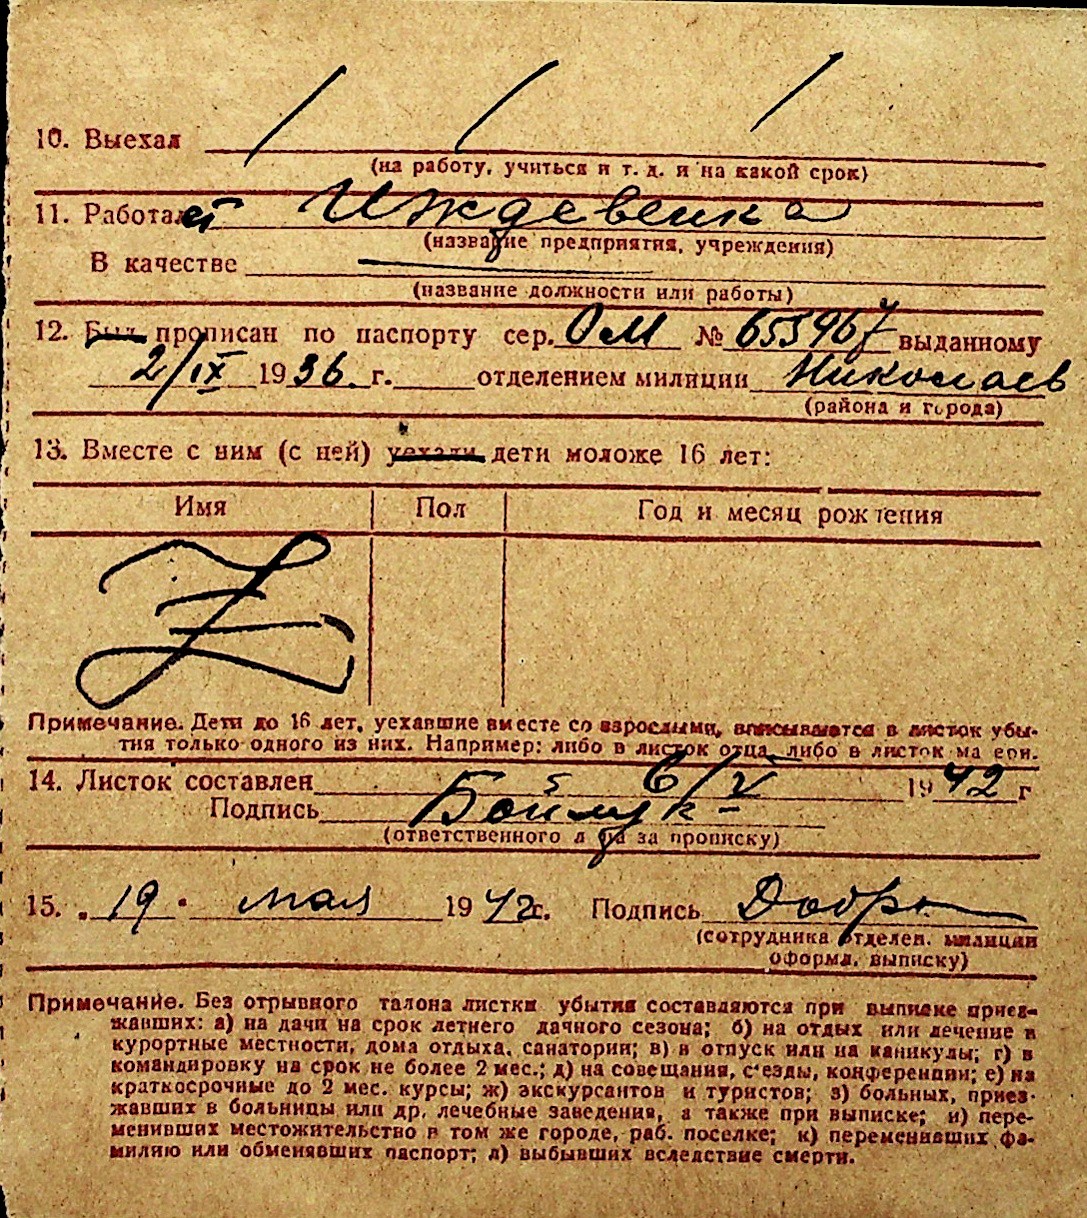 10. Выехал
(на работу, учиться и т. д. и на какой срок)
11. Работает Иждевенка
(название предприятия, учреждения)
В качестве
(название должности или работы)
12. Был прописан по паспорту сер. ОМ № 653967 выданному
2/IX 1936 г. отделением милиции Николаев
(района и города)
13. Вместе с ним (с ней) уехали дети моложе 16 лет:
Имя Пол Год и месяц рождения
Примечание. Дети до 16 лет, уехавшие вместе со взрослыми, вписываются в листок убы-
тия только одного из них. Например: либо в листок отца, либо в листок ма ери.
14. Листок составлен 6/V 1942 г
Подпись
(ответственного л ца за прописку)
15. „19" мая 1942г. Подпись
(сотрудника отделен. милиции
оформл. выписку)
Примечание. Без отрывного талона листки убытия составляются при выписке приез-
жавших: а) на дачи на срок летнего дачного сезона; б) на отдых или лечение в
курортные местности, дома отдыха, санатории; в) в отпуск или на каникулы; г) в
командировку на срок не более 2 мес.; д) на совещания, с'езды, конференции; е) на
краткосрочные до 2 мес. курсы; ж) экскурсантов и туристов; з) больных, приез-
жавших в больницы или др. лечебные заведения, а также при выписке; и) пере-
менивших местожительство в том же городе, раб. поселке; к) переменивших фа-
милию или обменявших паспорт; л) выбывших вследствие смерти.